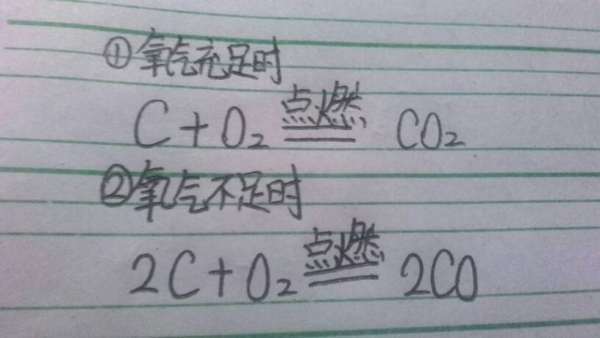 ①氧气充足时
C+O₂ 点燃 CO₂
②氧气不足时
2C+O₂ 点燃 2CO